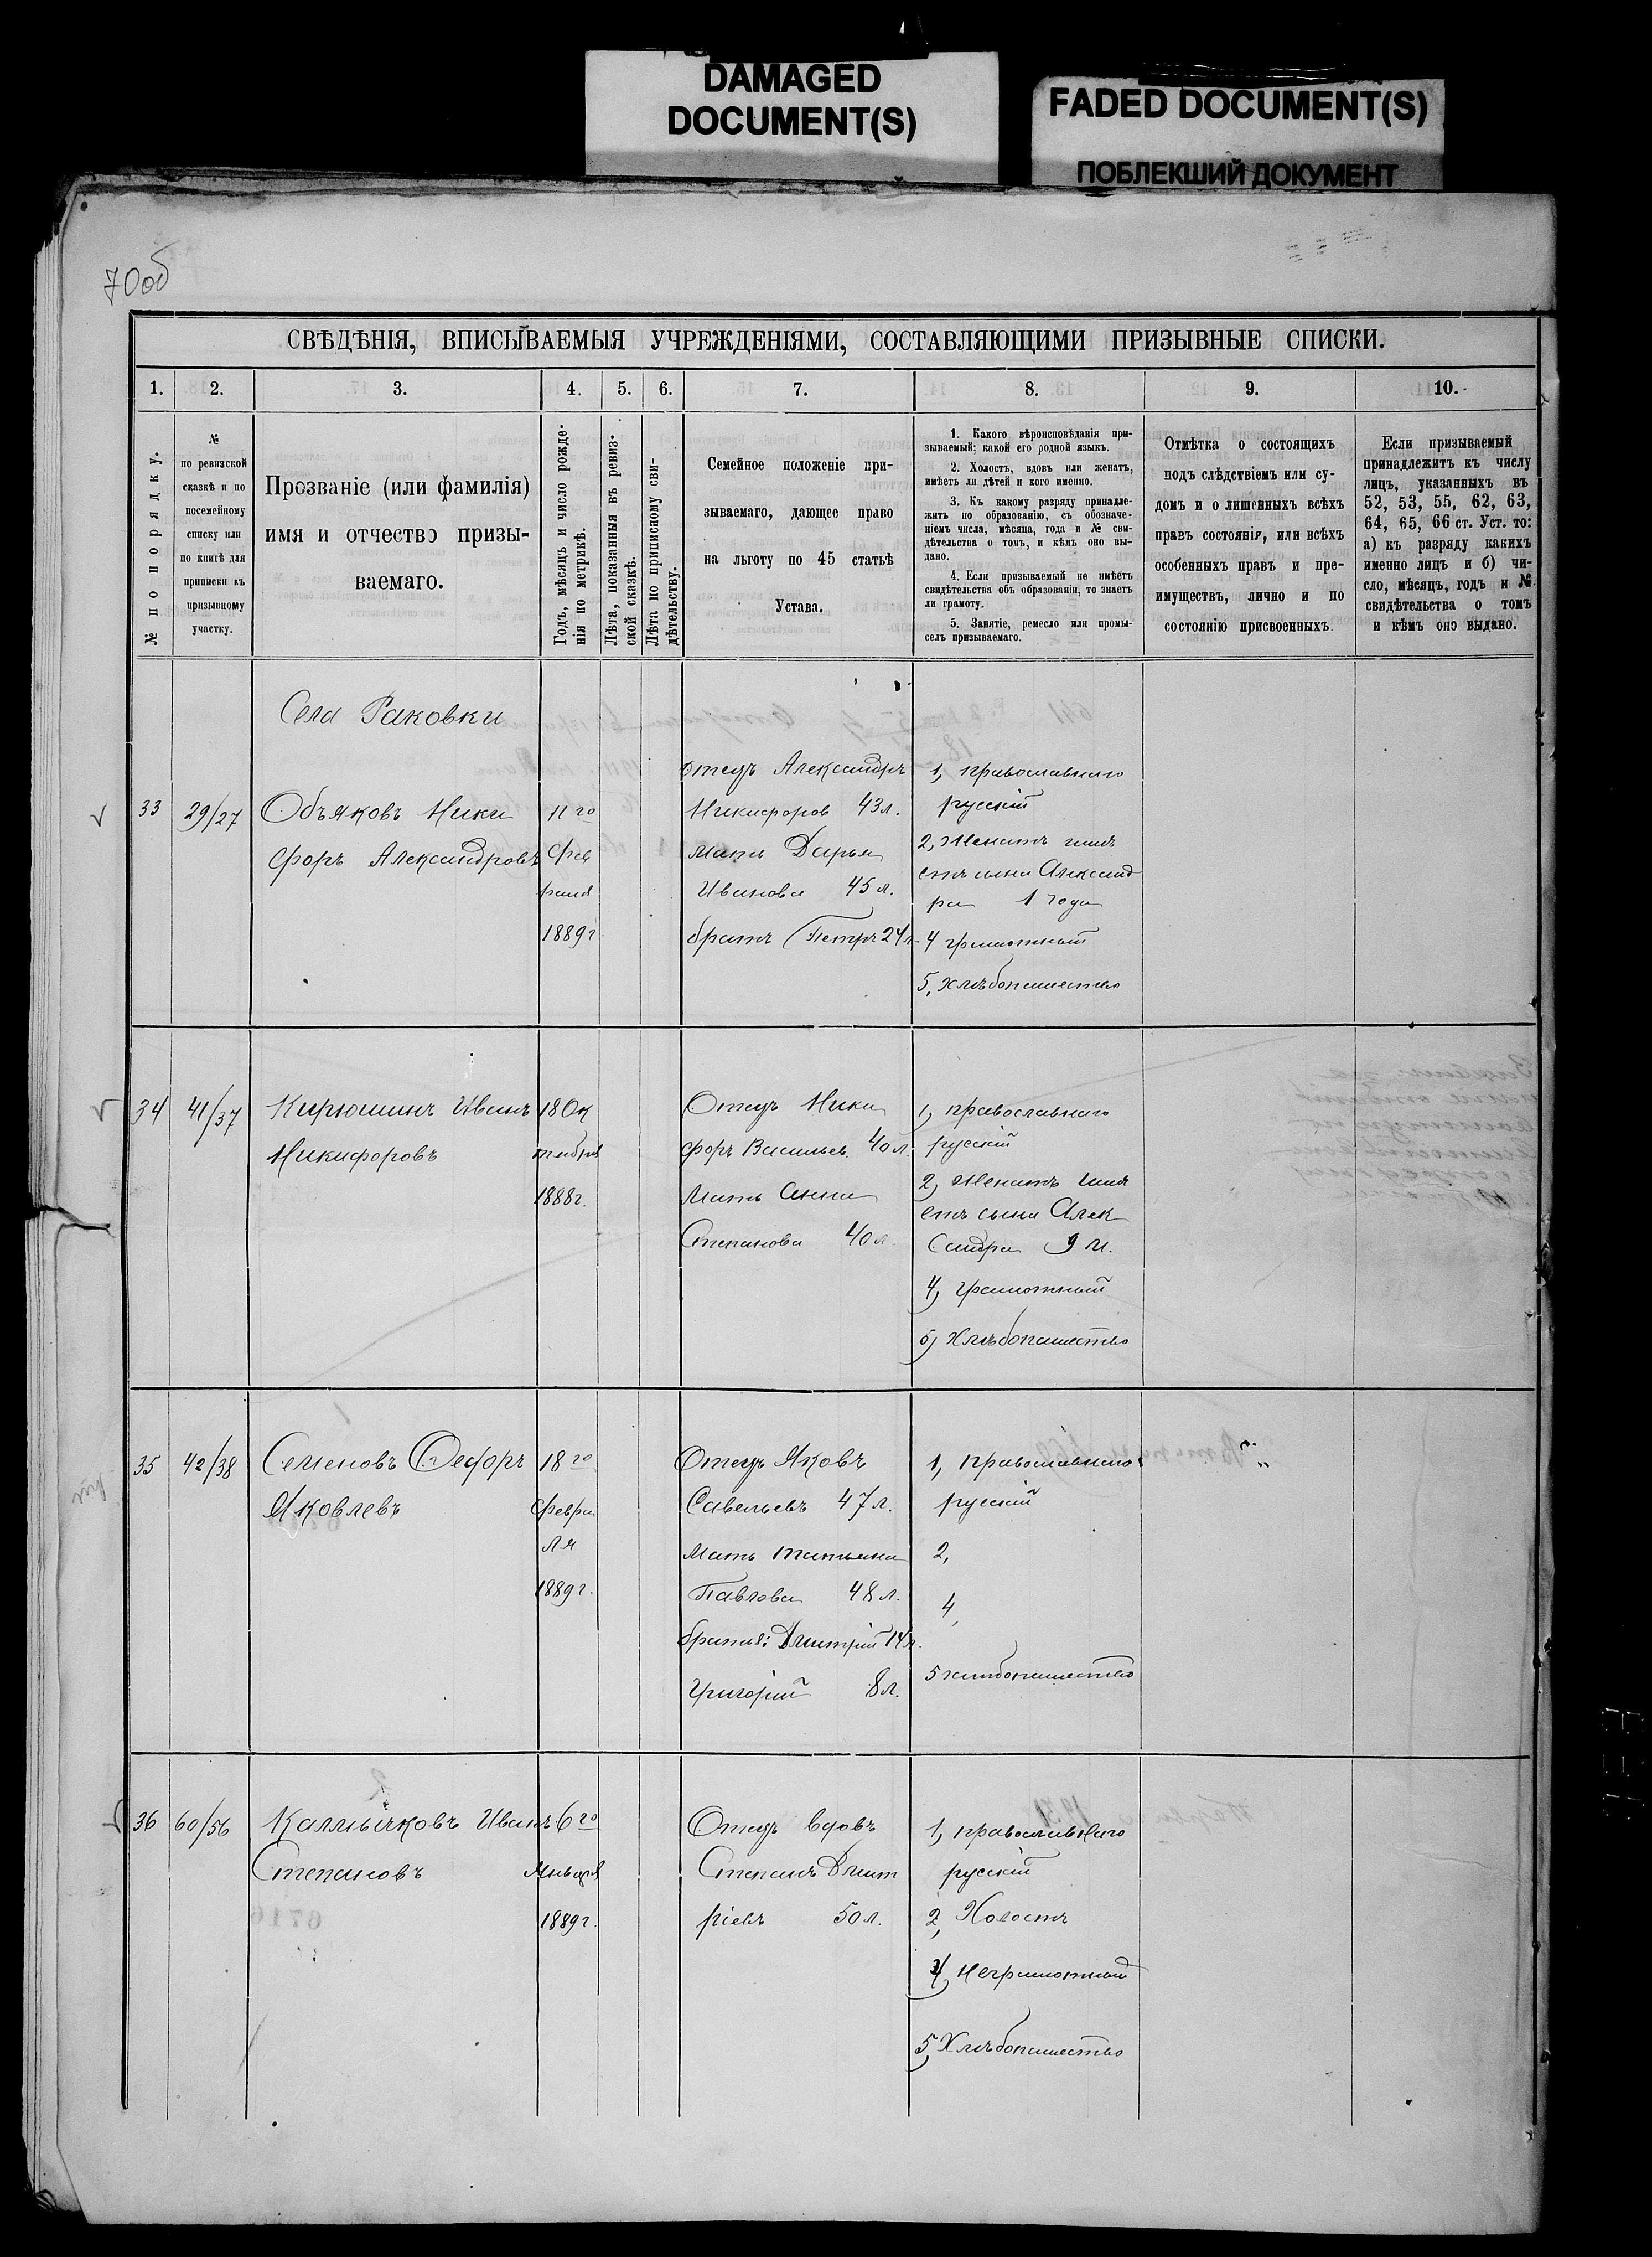 DAMAGED
DOCUMENT(S)
FADED DOCUMENT(S)
ПОБЛЕКШИЙ ДОКУМЕНТ
70об
СВѢДѢНІЯ, ВПИСЫВАЕМЫЯ УЧРЕЖДЕНІЯМИ, СОСТАВЛЯЮЩИМИ ПРИЗЫВНЫЕ СПИСКИ.
1. 2. 3. 4. 5. 6. 7. 8. 9. 10.
№ по порядку.
№
по ревизской
сказкѣ и по
посемейному
списку или
по книгѣ для
приписки къ
призывному
участку.
Прозваніе (или фамилія)
имя и отчество призы-
ваемаго.
Годъ, мѣсяцъ и число рожде-
нія по метрикѣ.
Лѣта, показанныя въ ревиз-
ской сказкѣ.
Лѣта по приписному сви-
дѣтельству.
Семейное положеніе при-
зываемаго, дающее право
на льготу по 45 статьѣ
Устава.
1. Какого вѣроисповѣданія при-
зываемый; какой его родной языкъ.
2. Холостъ, вдовъ или женатъ,
имѣетъ ли дѣтей и кого именно.
3. Къ какому разряду принадле-
житъ по образованію, съ обозначе-
ніемъ числа, мѣсяца, года и № сви-
дѣтельства о томъ, и кѣмъ оно вы-
дано.
4. Если призываемый не имѣетъ
свидѣтельства объ образованіи, то знаетъ
ли грамоту.
5. Занятіе, ремесло или промы-
селъ призываемаго.
Отмѣтка о состоящихъ
подъ слѣдствіемъ или су-
домъ и о лишенныхъ всѣхъ
правъ состоянія, или всѣхъ
особенныхъ правъ и пре-
имуществъ, лично и по
состоянію присвоенныхъ
Если призываемый
принадлежитъ къ числу
лицъ, указанныхъ въ
52, 53, 55, 62, 63,
64, 65, 66 ст. Уст. то:
а) къ разряду какихъ
именно лицъ и б) чи-
сло, мѣсяцъ, годъ и №
свидѣтельства о томъ
и кѣмъ оно выдано.
Села Раковки
33
29/27
Объяковъ Ники
форъ Александровъ
11го
Фев
раля
1889г
отецъ Александръ
Никифоров 43л.
мать Дарья
Иванова 45л.
братъ Петръ 24л.
1, православнаго
русскій
2, женатъ имѣ
етъ сына Александ
ра 1 года
4 грамотный
5, хлѣбопашество
34
41/37
Кирюшинъ Иванъ
Никифоровъ
18 Ок
тября
1888г.
Отецъ Ники
форъ Васильев. 40л.
Мать Анна
Степанова 40л.
1, православнаго
русскій
2, женатъ имѣ
етъ сына Алек
сандра 9 м.
4, грамотный
5, хлѣбопашество
35
42/38
Семеновъ Федоръ
Яковлевъ
18го
Февра
ля
1889г.
Отецъ Яковъ
Савельевъ 47л.
Мать татьяна
Павлова 48л.
братья: Дмитрій 14л.
Григорій 8л.
1, православнаго
русскій
2,
4,
5 хлѣбопашество
36
60/56
Калмычковъ Иванъ
Степановъ
6го
Января
1889г.
Отецъ вдовъ
Степанъ Дмит
ріевъ 50л.
1, православнаго
русскій
2, Холостъ
4, неграмотный
5, Хлѣбопашество